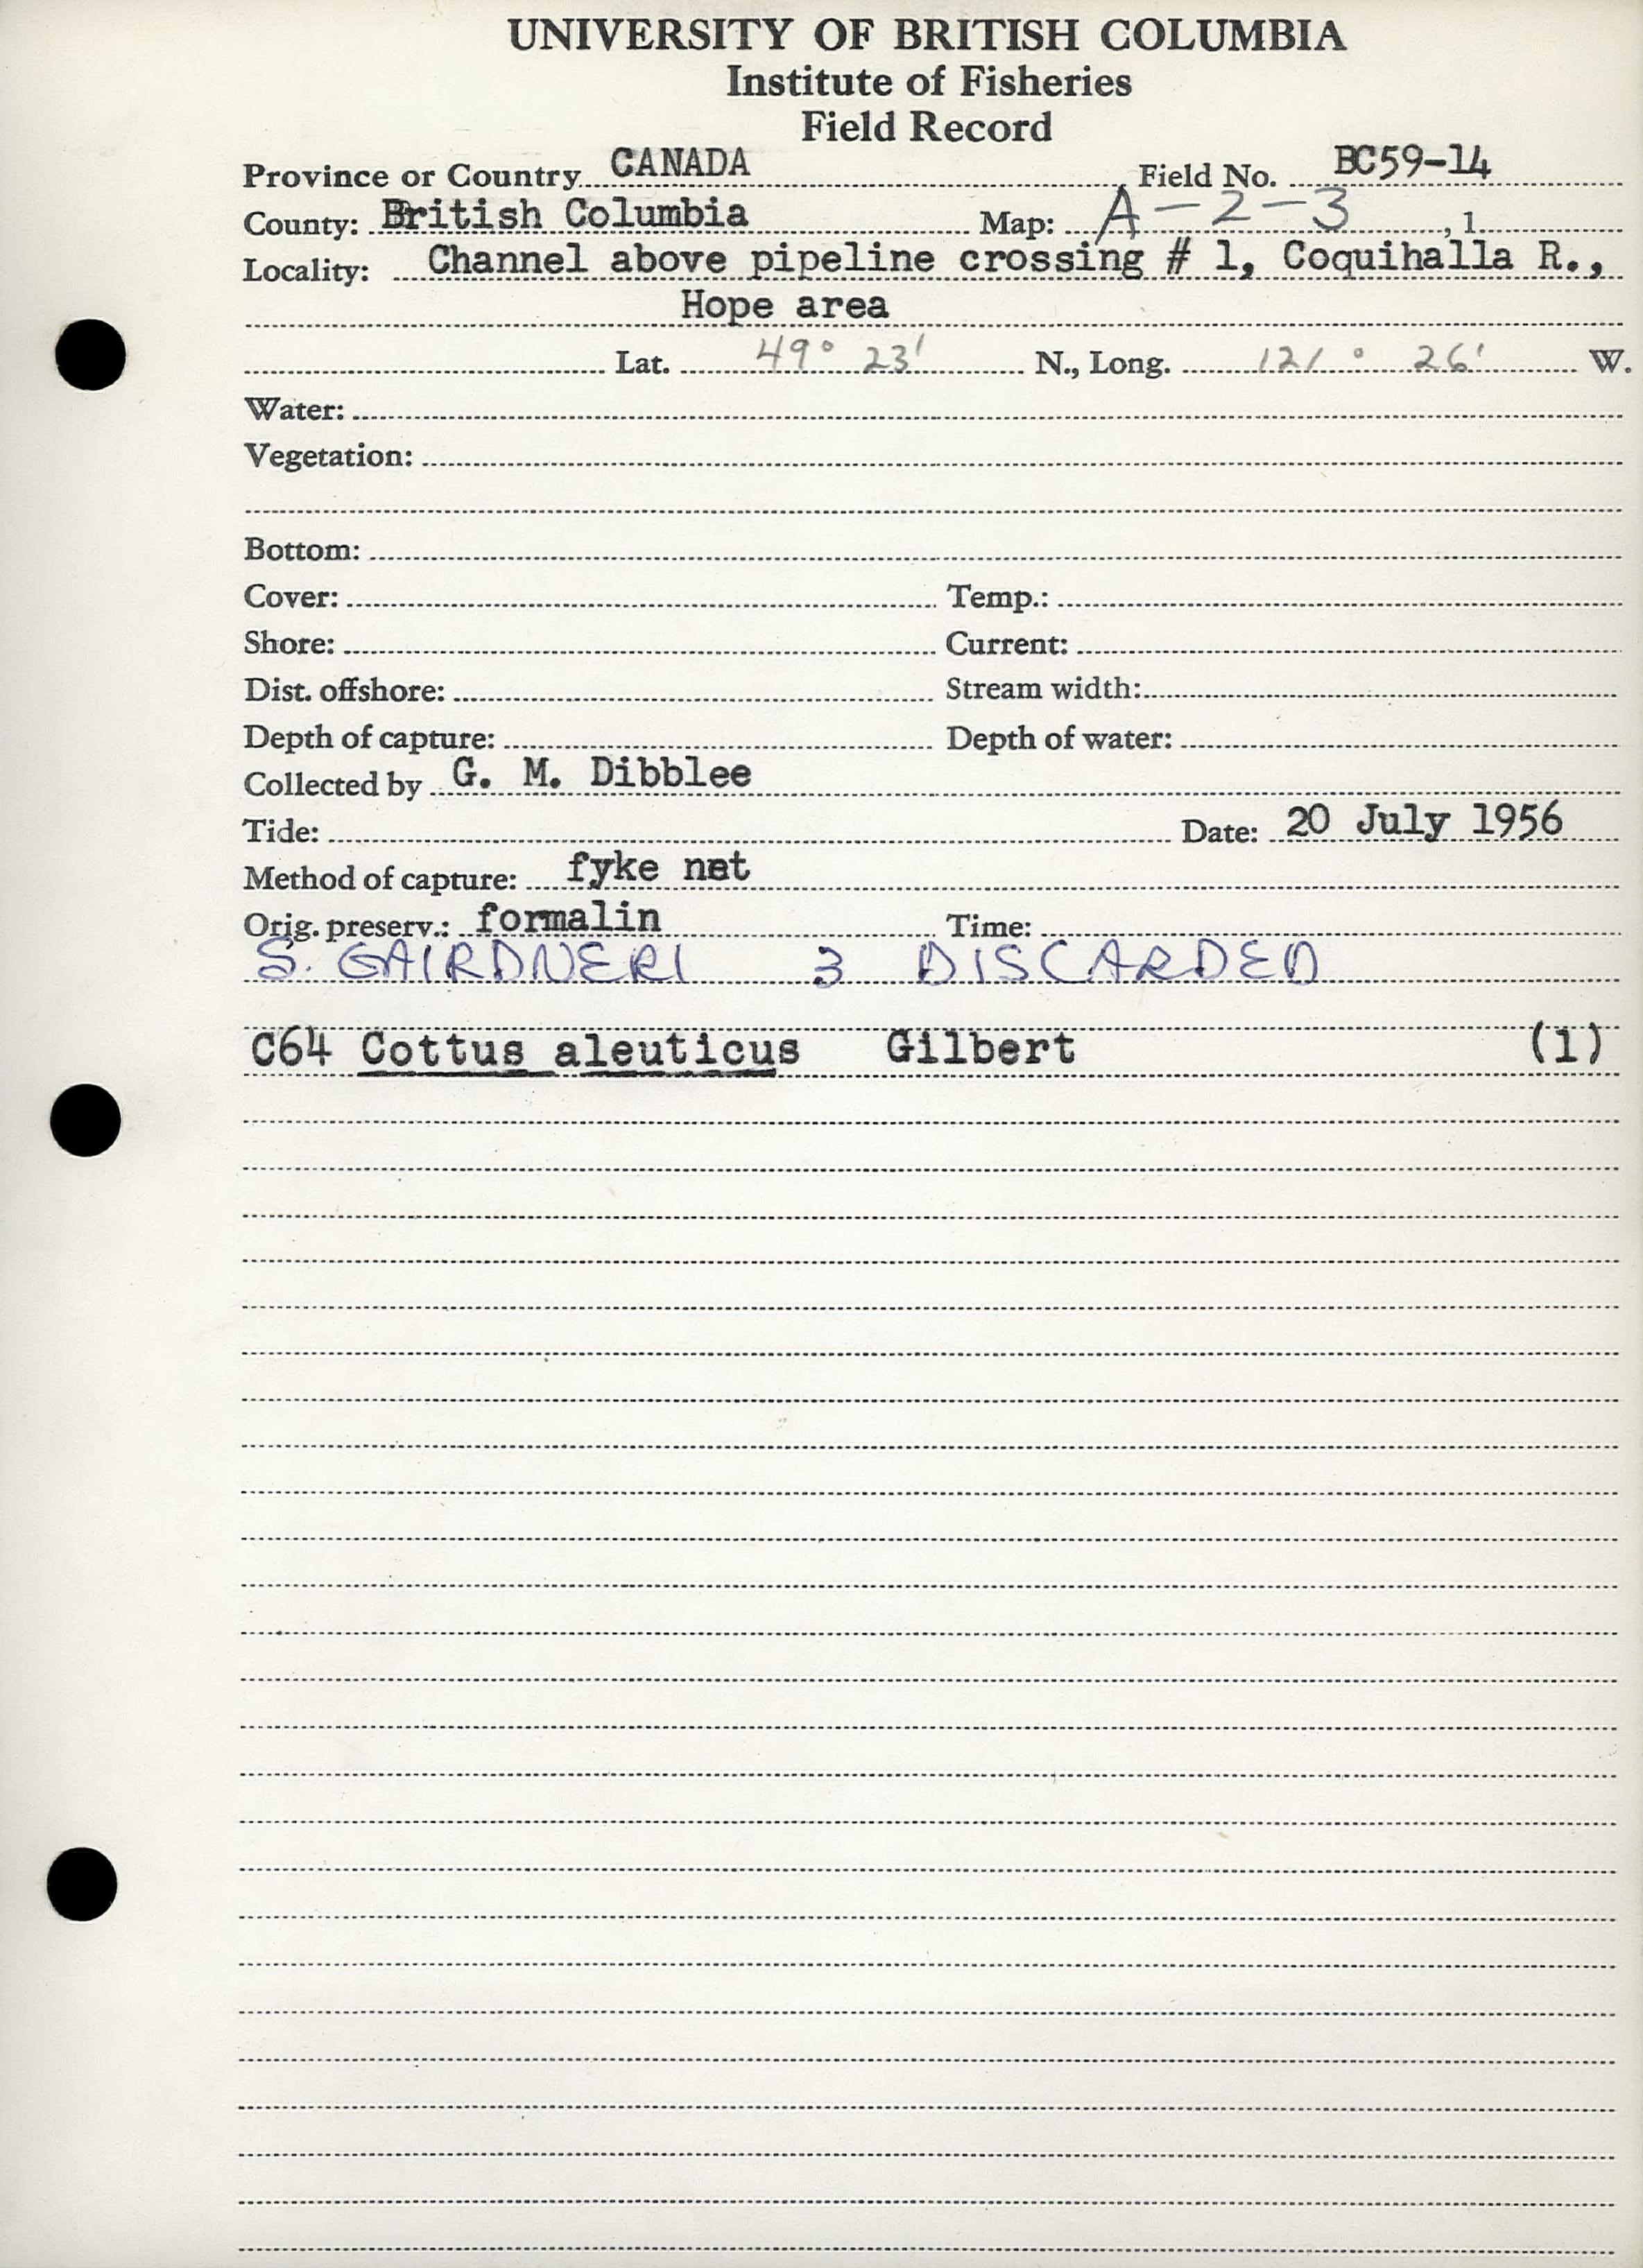 UNIVERSITY OF BRITISH COLUMBIA
Institute of Fisheries
Field Record
Province or Country CANADA Field No. BC59-14
County: British Columbia Map: A-2-3, 1
Locality: Channel above pipeline crossing # 1, Coquihalla R.,
Hope area
Lat. 49° 23' N., Long. 121° 26' W.
Water:
Vegetation:
Bottom:
Cover: Temp.:
Shore: Current:
Dist. offshore: Stream width:
Depth of capture: Depth of water:
Collected by G. M. Dibblee
Tide: Date: 20 July 1956
Method of capture: fyke net
Orig. preserv.: formalin Time:
S. GAIRDNERI 3 DISCARDED
C64 Cottus aleuticus Gilbert (1)